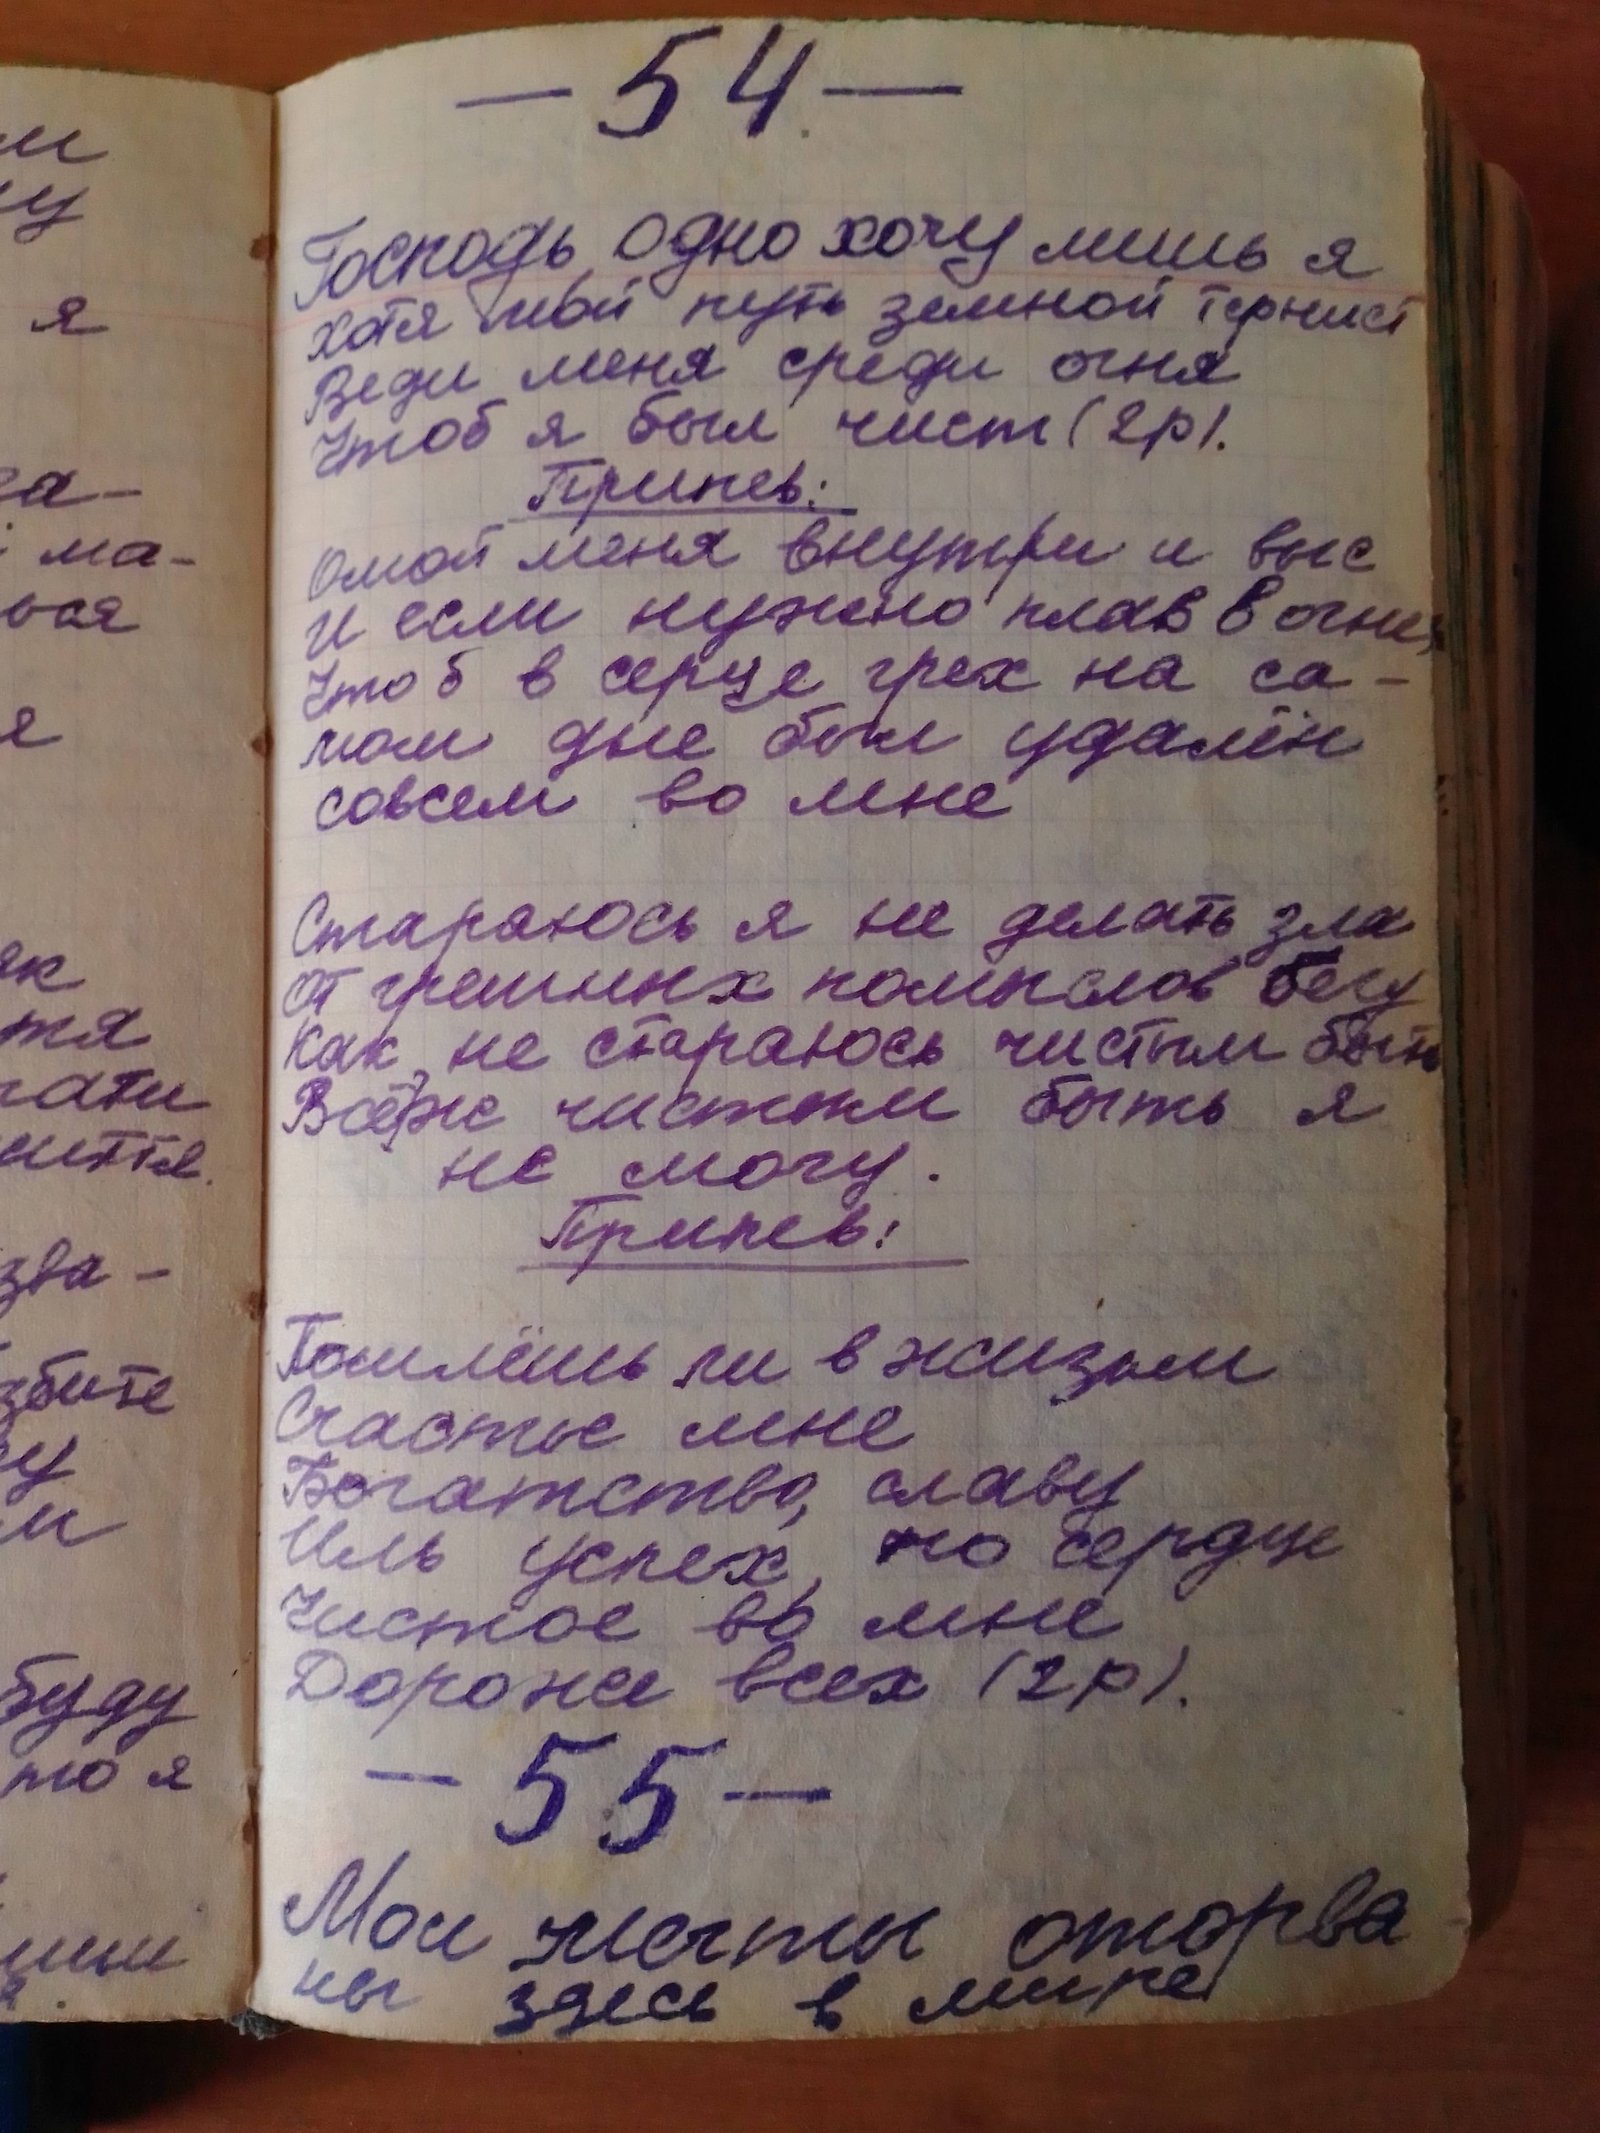 — 54 —
Господь, одно хочу лишь я
хотя твой путь земной тернист
Веди меня среди огня
Чтоб я был чист (2р).
Припев:
Омой меня внутри и вне
И если нужно плав в огне,
Чтоб в серце грех на са-
мом дне был удалён
совсем во мне
Стараюсь я не делать зла
От грешных помыслов бегу
Как не стараюсь чистым быть
Всё ж чистым быть я
не могу.
Припев:
Пошлёшь ли в жизни
Счастье мне
Богатство, славу
Иль успех, но сердце
Чистое во мне
Дороже всех (2р).
— 55 —
Мои мечты оторва
ны здесь в мире
м
у
я
ма-
ься
я
як
тя
зва-
ву
м
буду
то я